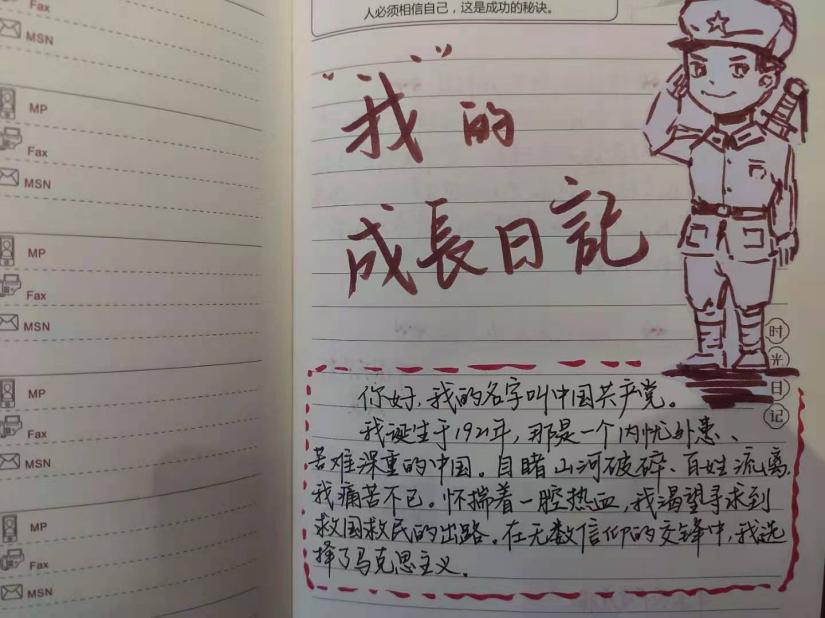 Fax
MSN
MP
Fax
MSN
MP
Fax
MSN
MP
Fax
MSN
MP
Fax
MSN
人必须相信自己，这是成功的秘诀。
“我”的
成長日記
时光日记
你好，我的名字叫中国共产党。
我诞生于1921年，那是一个内忧外患、
苦难深重的中国。目睹山河破碎、百姓流离，
我痛苦不已。怀揣着一腔热血，我渴望寻求到
救国救民的出路。在无数信仰的交锋中，我选
择了马克思主义。